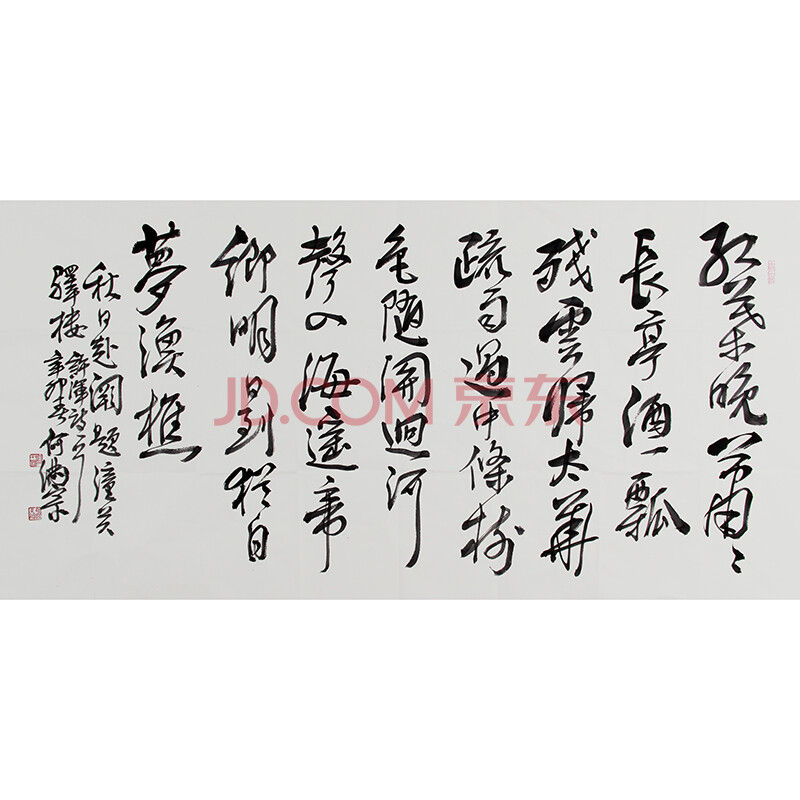 紅葉晚蕭〻
長亭酒一瓢
殘雲歸太華
疏雨過中條樹
色隨關迥河
聲入海遥帝
鄉明日到猶自
夢漁樵
秋日赴闕題潼關
驛樓
許渾詩
辛卯春 何滿宗
JD.COM 京东